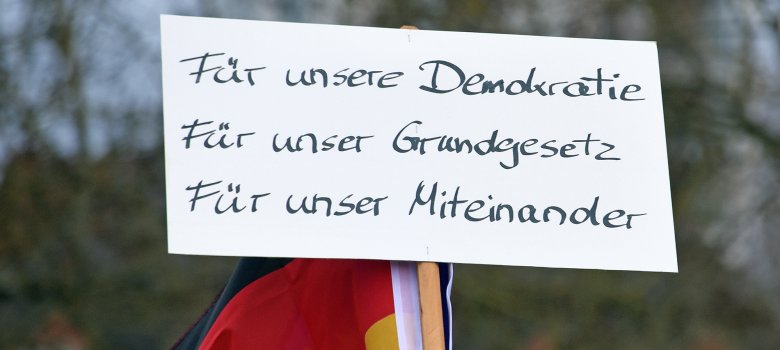 Für unsere Demokratie
Für unser Grundgesetz
Für unser Miteinander